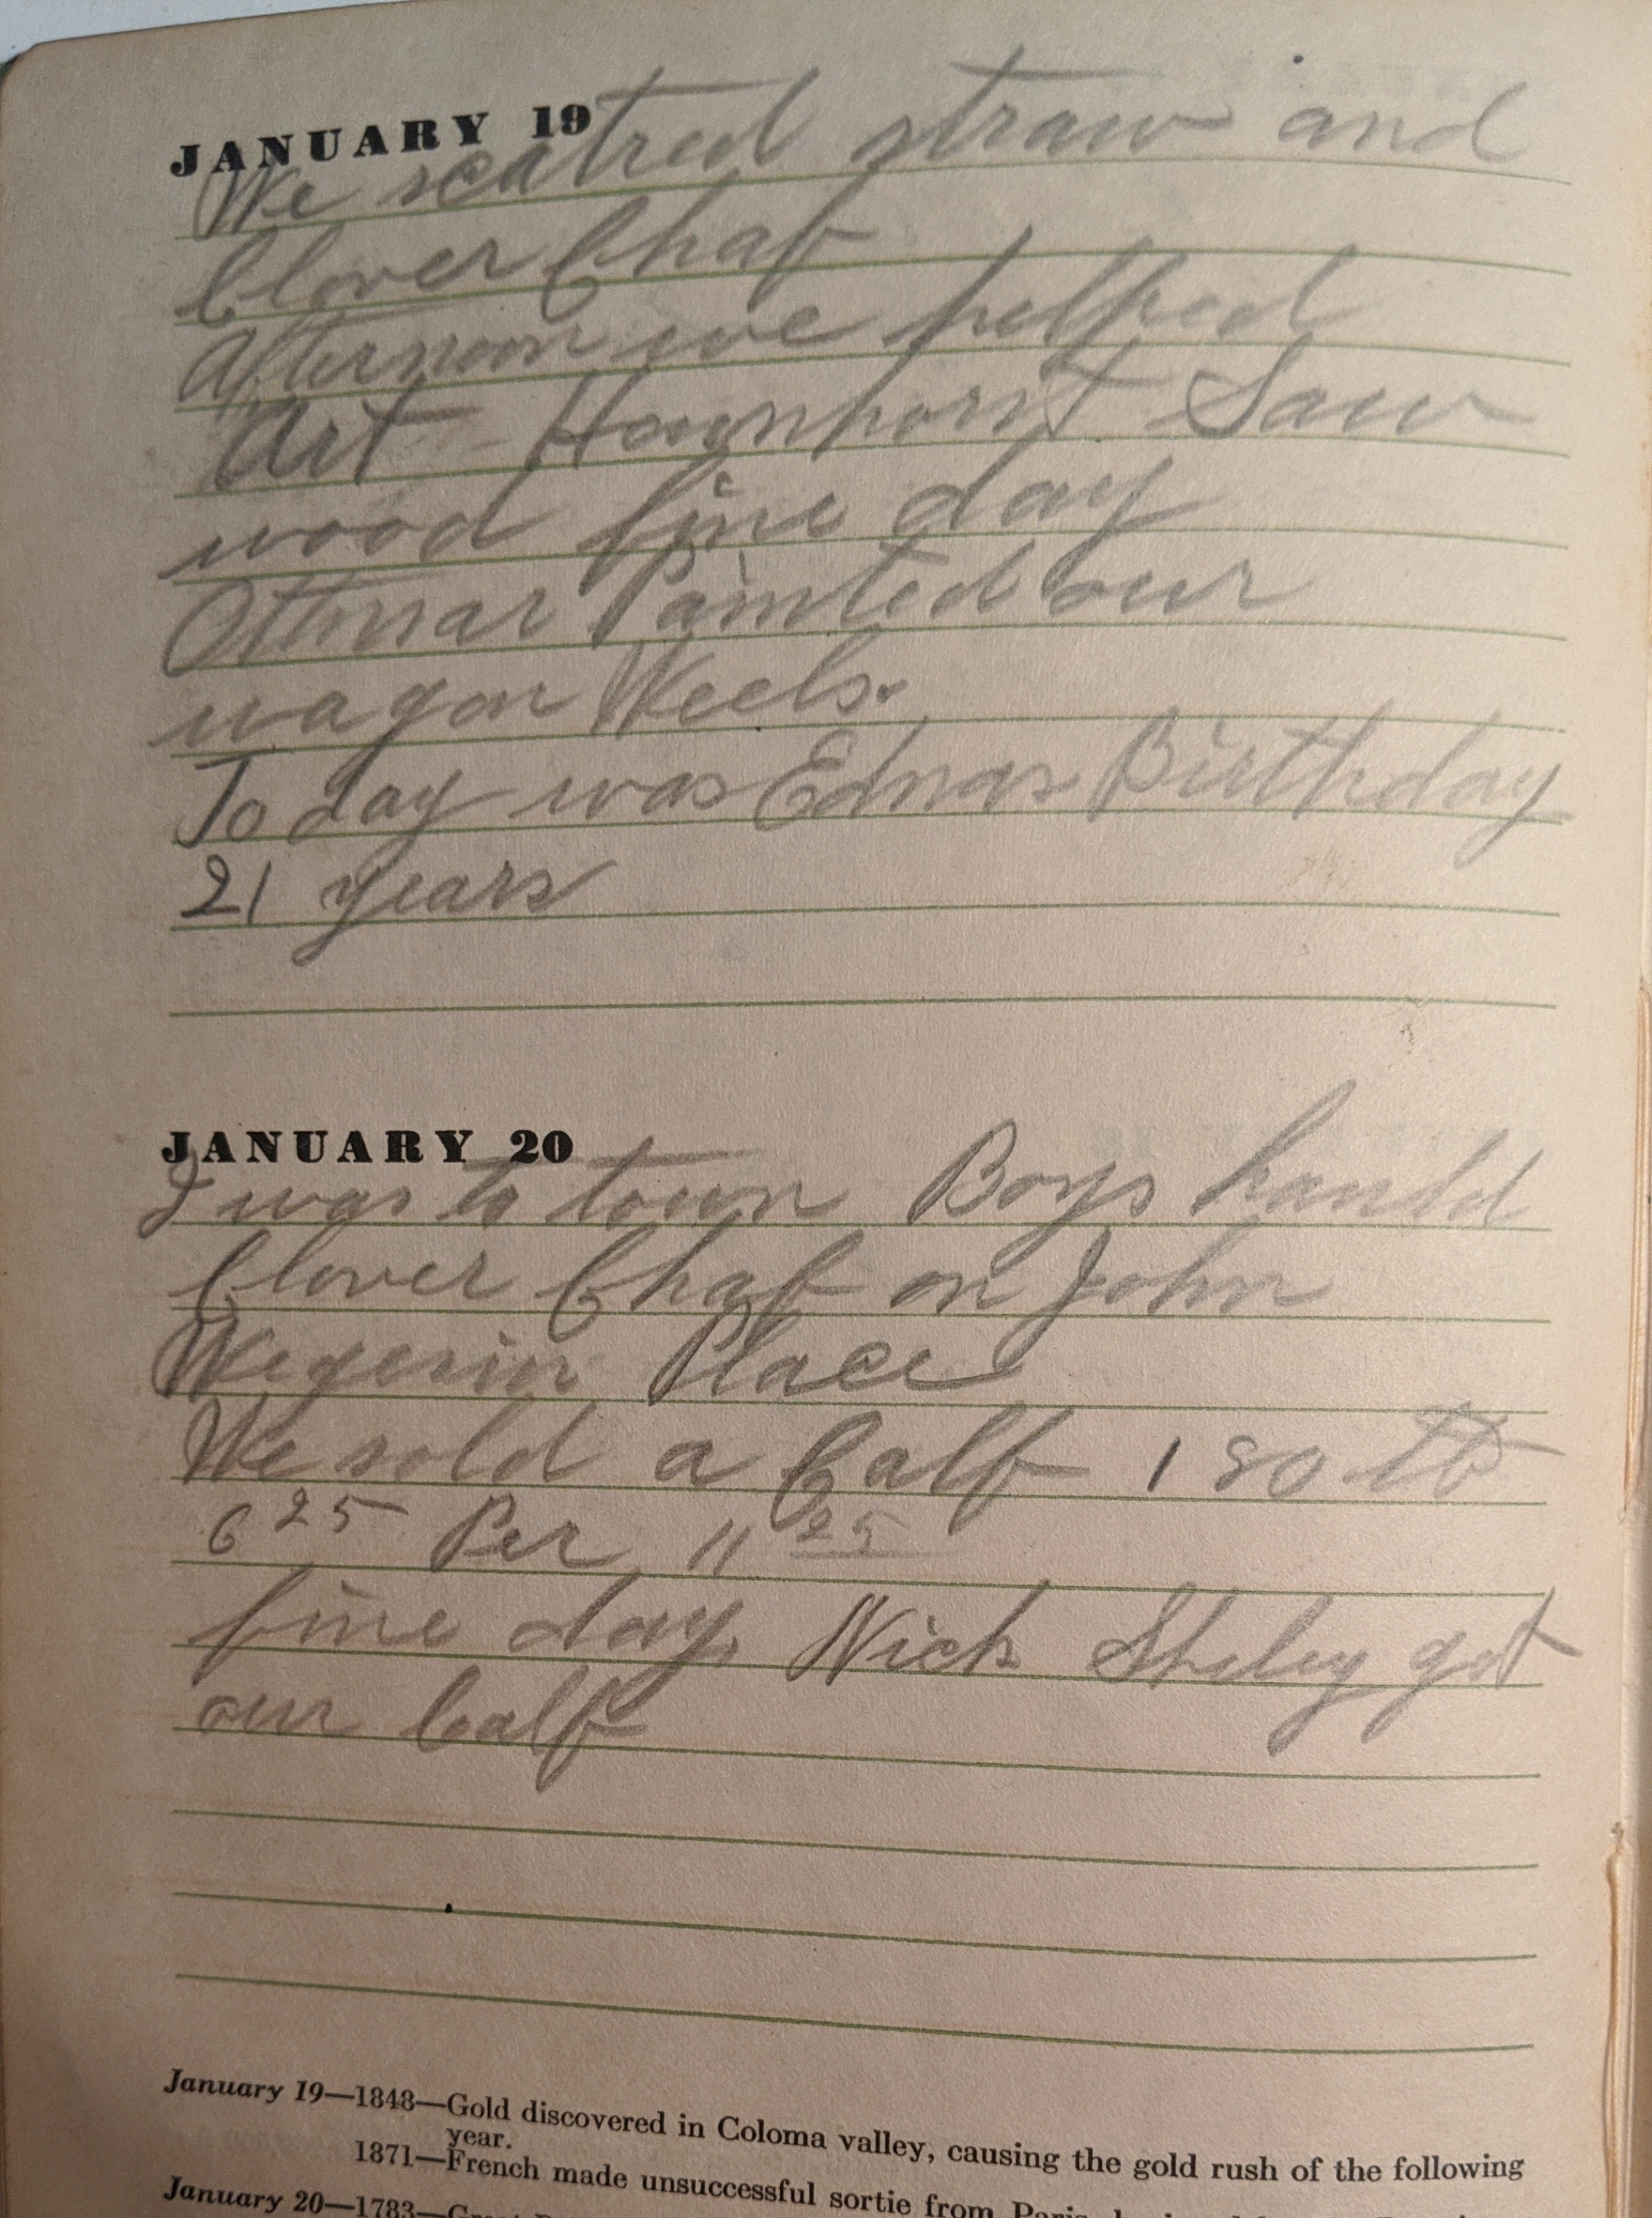 JANUARY 19
We scatred straw and
Clover Chaf
Afternoon we helped
Art Saw
wood fine day
Ottmar Painted our
wagon Weels.
To day was Ednas Birthday
21 years
JANUARY 20
I was to town Boys hauld
Clover Chaf on John
Wegerin Place
We sold a Calf 180 lb
6 25 Per 11 25
fine day, Nick got
our Calf
January 19—1848—Gold discovered in Coloma valley, causing the gold rush of the following
year.
1871—French made unsuccessful sortie from
January 20—1783—